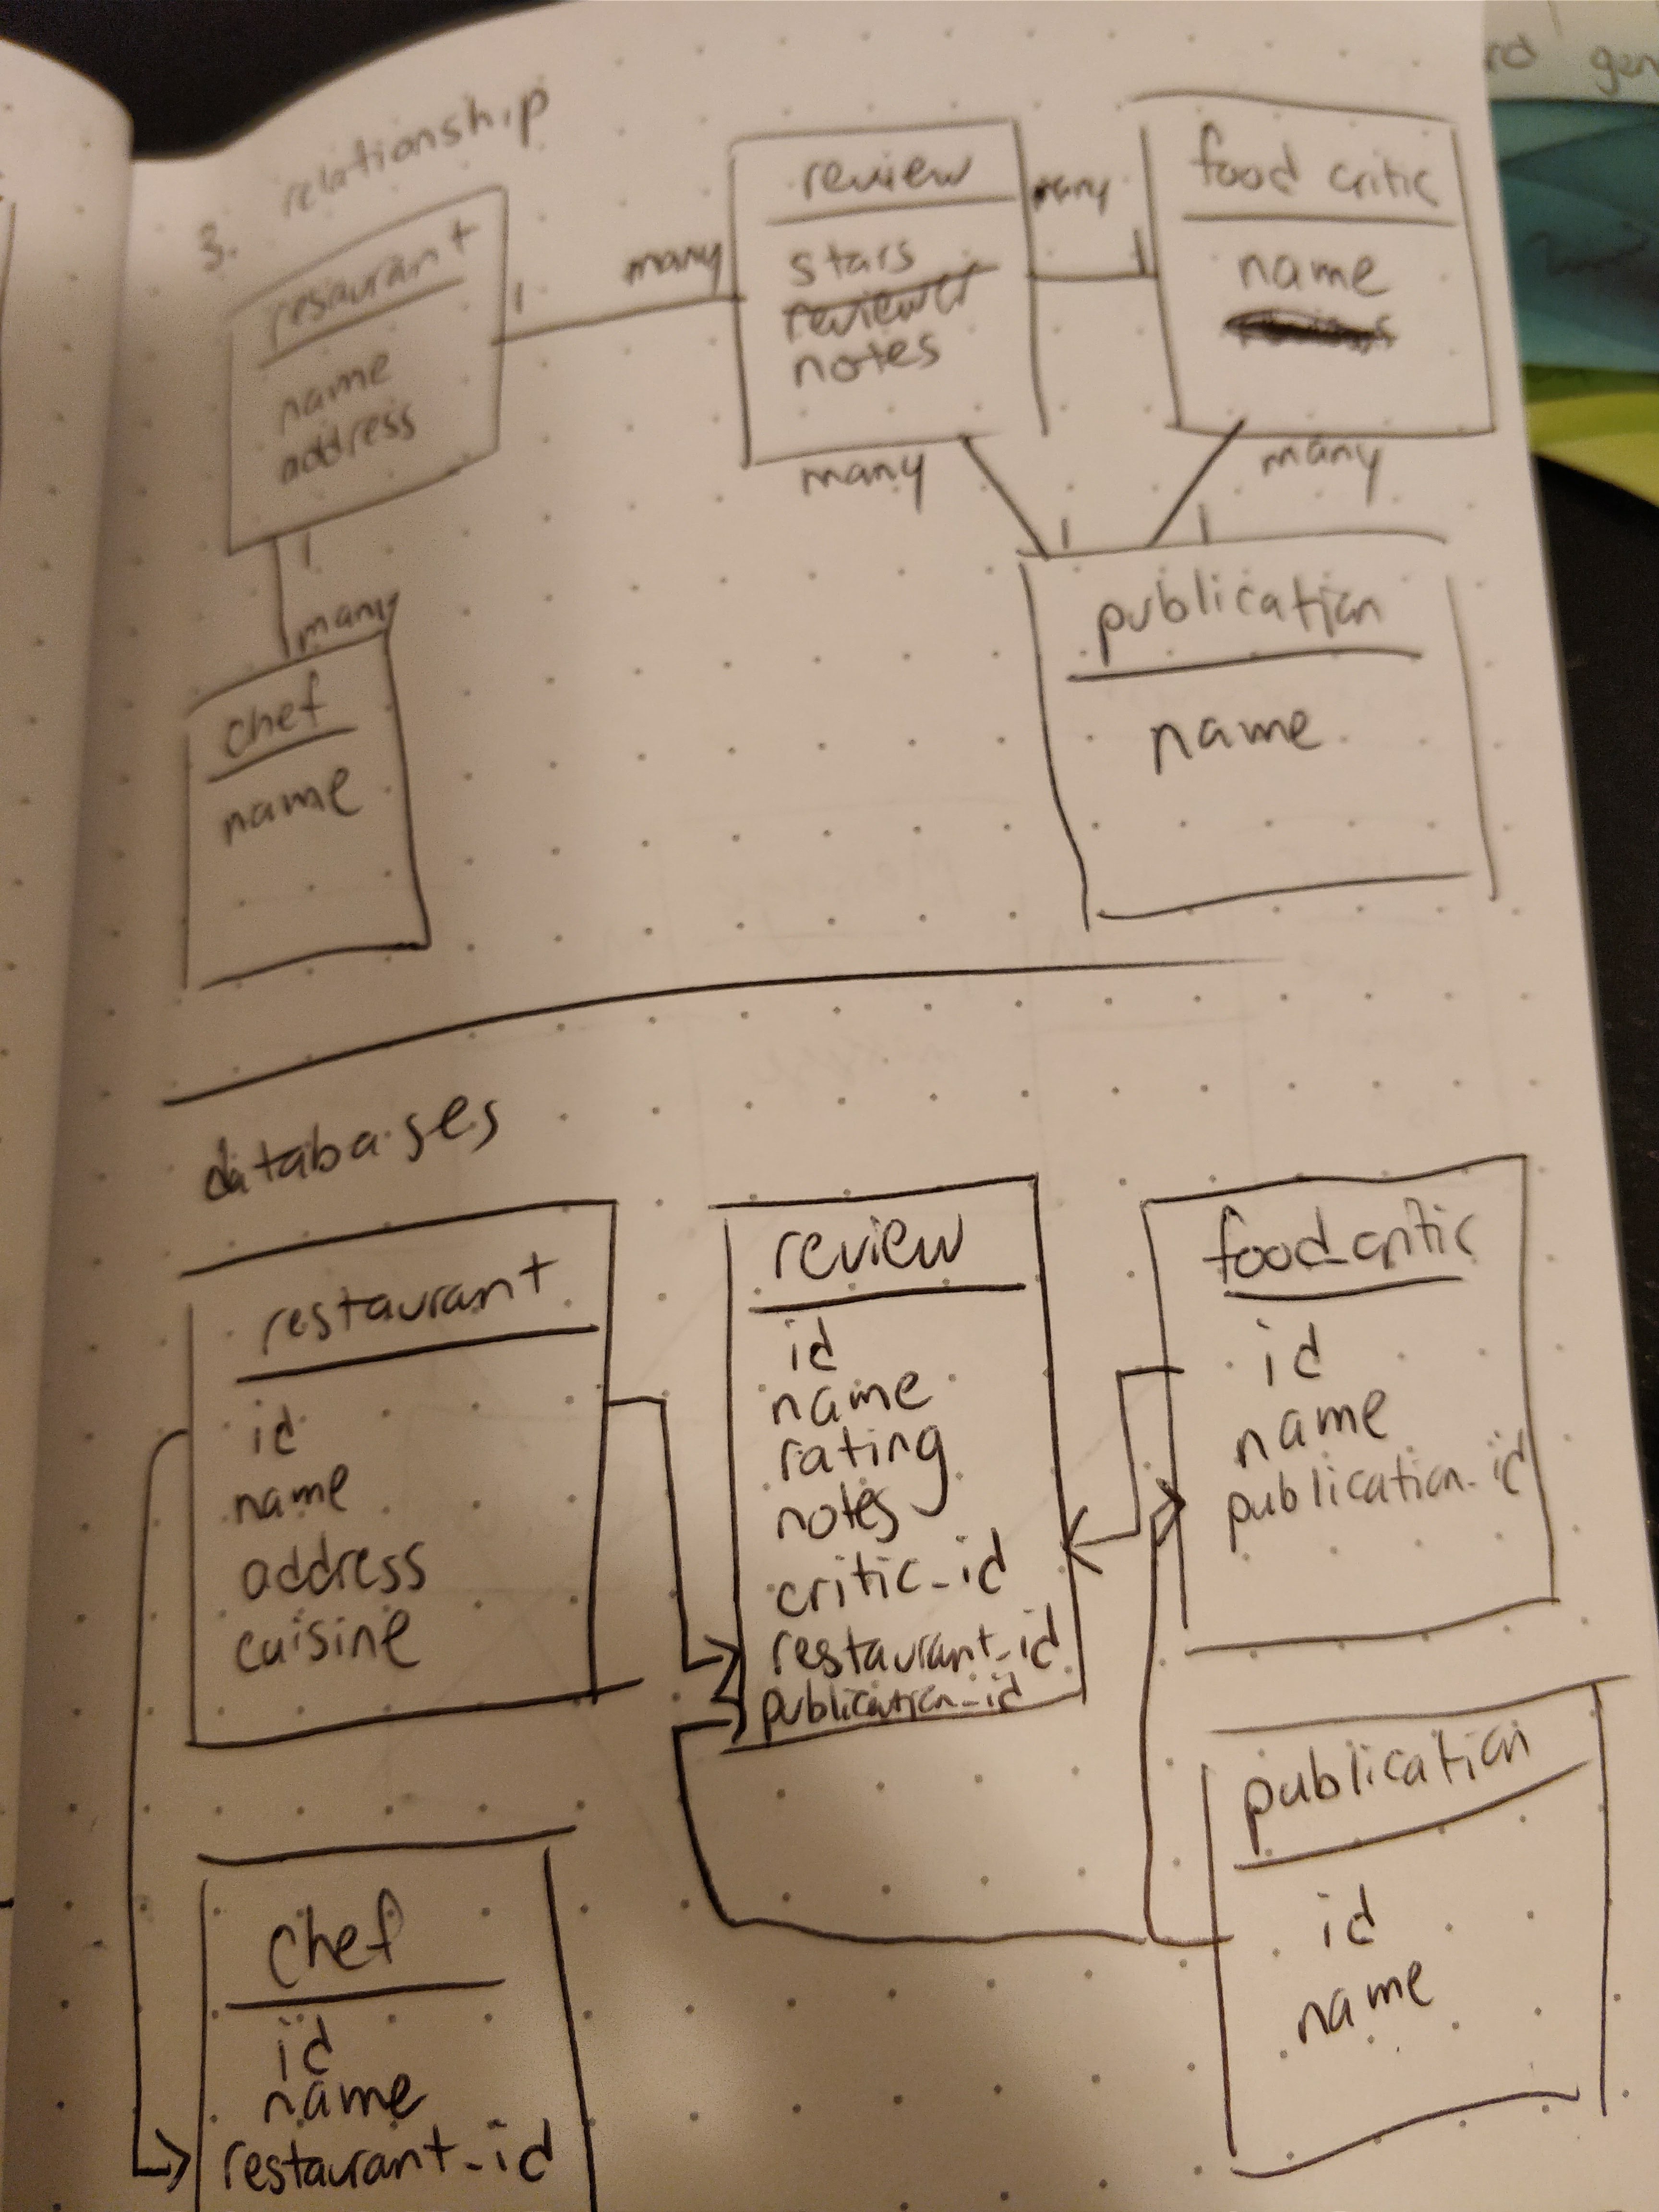 3. relationship
restaurant
name
address
1
many
review
stars
reviewer
notes
many
1
food critic
name
1
many
chef
name
many
1
many
1
publication
name
databases
restaurant
id
name
address
cuisine
review
id
name
rating
notes
critic_id
restaurant_id
publication_id
food_critic
id
name
publication_id
chef
id
name
restaurant_id
publication
id
name
rd gen